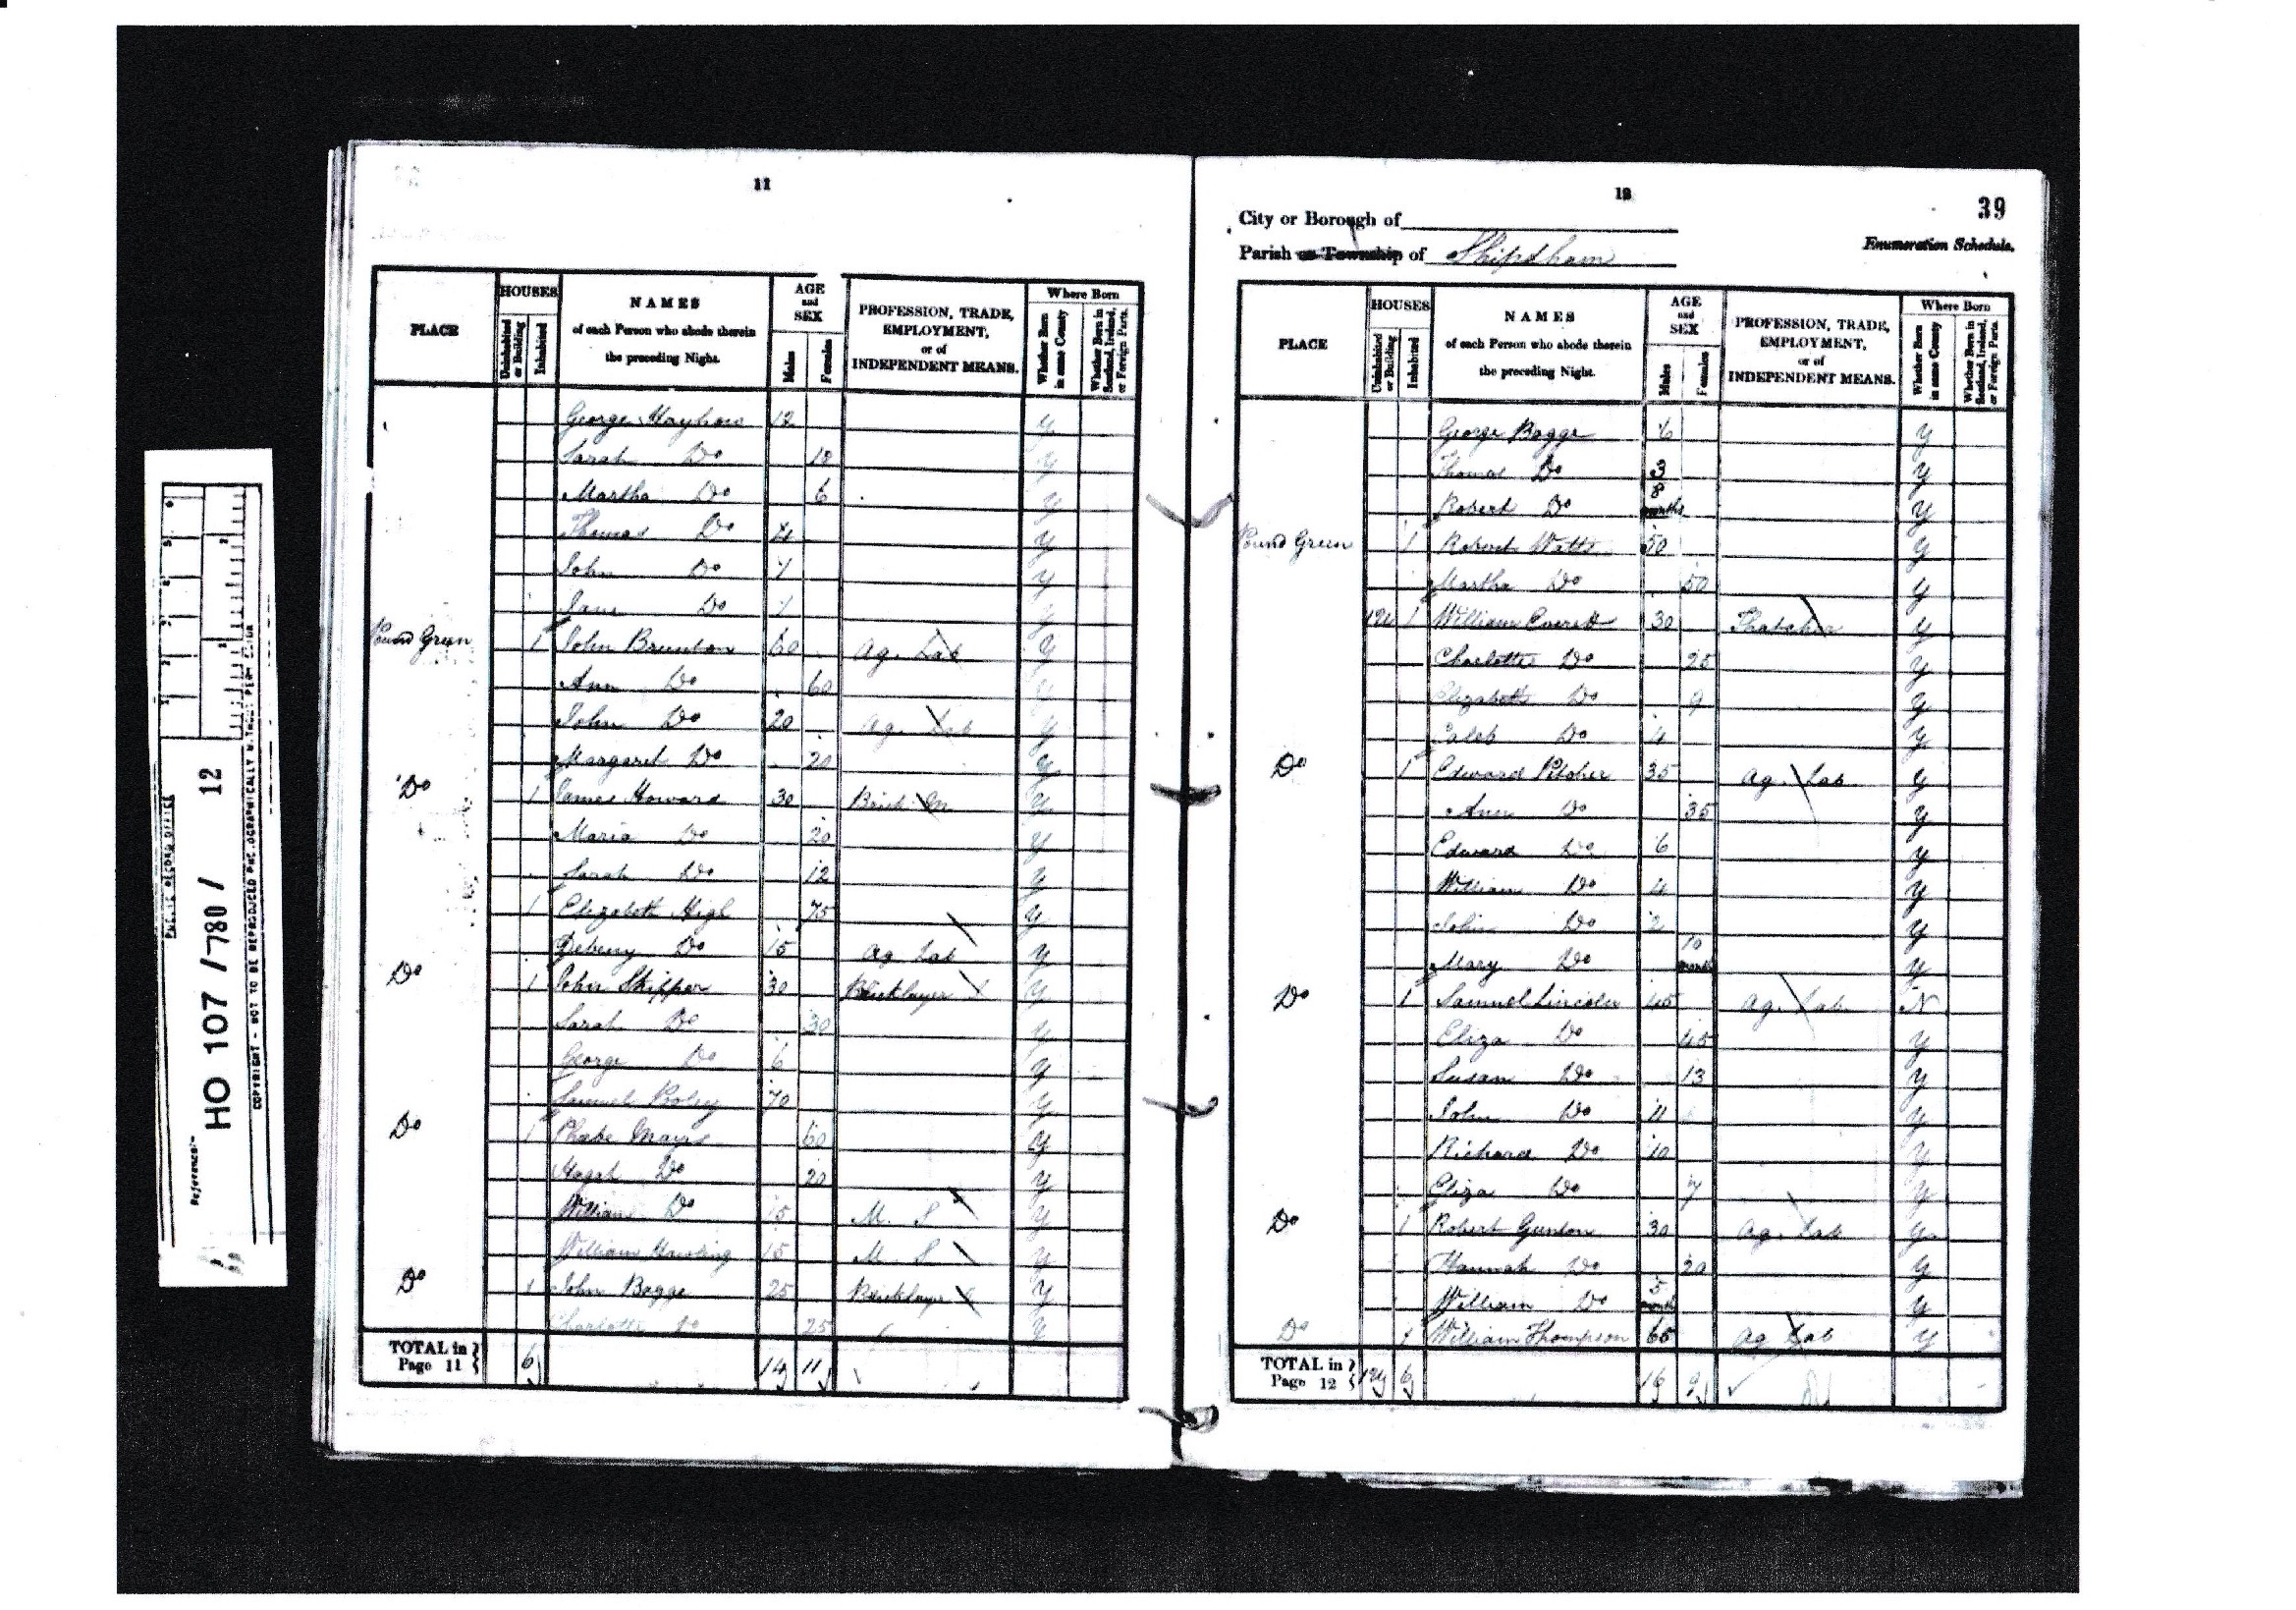 11
PLACE
HOUSES
Uninhabited or Building
Inhabited
NAMES
of each Person who abode therein
the preceding Night.
AGE
and
SEX
Males
Females
PROFESSION, TRADE,
EMPLOYMENT,
or of
INDEPENDENT MEANS.
Where Born
Whether Born in same County
Whether Born in Scotland, Ireland, or Foreign Parts.
George Mayhew 12 Y
Sarah Do 10 Y
Martha Do 6 Y
Thomas Do 4 Y
John Do Y
Jane Do Y
Pound Green 1 John Brunton 60 Ag. Lab Y
Ann Do 60 Y
John Do 20 Ag. Lab Y
Margaret Do 20 Y
Do 1 James Howard 30 Brick M Y
Maria Do 20 Y
Sarah Do 12 Y
1 Elizabeth High 75 Y
Do 15 Ag. Lab Y
Do 1 John Skipper 30 Bricklayer Y
Sarah Do 30 Y
George Do 6 Y
Samuel 70 Y
Do 1 Phebe 60 Y
Do 20 Y
William Do 15 M. S Y
William 15 M. S Y
Do 1 John Bagge 25 Bricklayer Y
Charlotte Do 25 Y
TOTAL in Page 11 6 14 11
12
39
City or Borough of
Parish or Township of Shipdham
Enumeration Schedule.
PLACE
HOUSES
Uninhabited or Building
Inhabited
NAMES
of each Person who abode therein
the preceding Night.
AGE
and
SEX
Males
Females
PROFESSION, TRADE,
EMPLOYMENT,
or of
INDEPENDENT MEANS.
Where Born
Whether Born in same County
Whether Born in Scotland, Ireland, or Foreign Parts.
George Bagge 6 Y
Thomas Do Y
Robert Do 8 months Y
Pound Green 1 Robert Watts 50 Y
Martha Do 50 Y
1 William Everett 30 Thatcher Y
Charlotte Do 25 Y
Elizabeth Do 9 Y
Caleb Do 4 Y
Do 1 Edward Pitcher 35 Ag. Lab Y
Ann Do 35 Y
Edward Do 6 Y
William Do 4 Y
John Do 2 Y
Mary Do 10 months Y
Do 1 Samuel Lincoln 45 Ag. Lab N
Eliza Do 45 Y
Susan Do 13 Y
John Do 11 Y
Richard Do 10 Y
Eliza Do 7 Y
Do 1 Robert Gunton 30 Ag. Lab Y
Hannah Do 20 Y
William Do 5 months Y
Do 1 William Thompson 65 Ag Lab Y
TOTAL in Page 12 6 16 9
PUBLIC RECORD OFFICE
Reference:-
HO 107 / 780 / 12
COPYRIGHT - NOT TO BE REPRODUCED PHOTOGRAPHICALLY WITHOUT PERMISSION